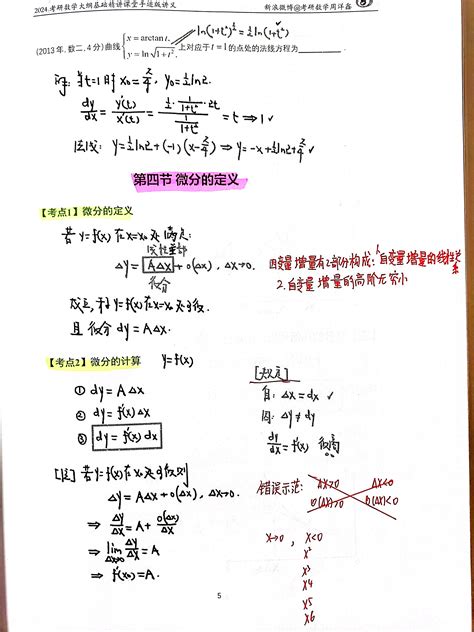 2024考研数学大纲基础精讲课堂手迹版讲义
新浪微博@考研数学周洋鑫
(2013年,数二,4分)曲线 { x = arctan t, y = ln√(1+t²) 上对应于 t=1 的点处的法线方程为
→ ln(1+t²)^½ = ½ln(1+t²)
当t=1时 x₀=π/4, y₀=½ln2.
dy/dx = y'(t)/x'(t) = (½·1/(1+t²)·2t)/(1/(1+t²)) = t ⇒ 1 ✓
法线: y=½ln2+(-1)(x-π/4) ⇒ y=-x+½ln2+π/4 ✓
第四节 微分的定义
【考点1】微分的定义
若 y=f(x) 在 x=x₀ 处
线性主部
Δy = AΔx + o(Δx), Δx→0.
微分
因变量增量有2部分构成: 1.自变量增量的线性
2.自变量增量的高阶无穷小
成立, y=f(x)在x=x₀处可微.
且 微分 dy = AΔx.
【考点2】微分的计算 y=f(x)
① dy = AΔx
② dy = f'(x)Δx
③ dy = f'(x)dx
自: Δx = dx ✓
因: Δy ≠ dy
dy/dx = f'(x) 微商
[注] 若y=f(x)在x₀处可微,则
Δy = AΔx + o(Δx), Δx→0.
⇒ Δy/Δx = A + o(Δx)/Δx
⇒ lim Δx→0 Δy/Δx = A
⇒ f'(x₀) = A.
错误示范: Δx>0 Δx<0
o(Δx)>0 o(Δx)<0
x→0, x<0
x²
x³
x4
x5
x6
5